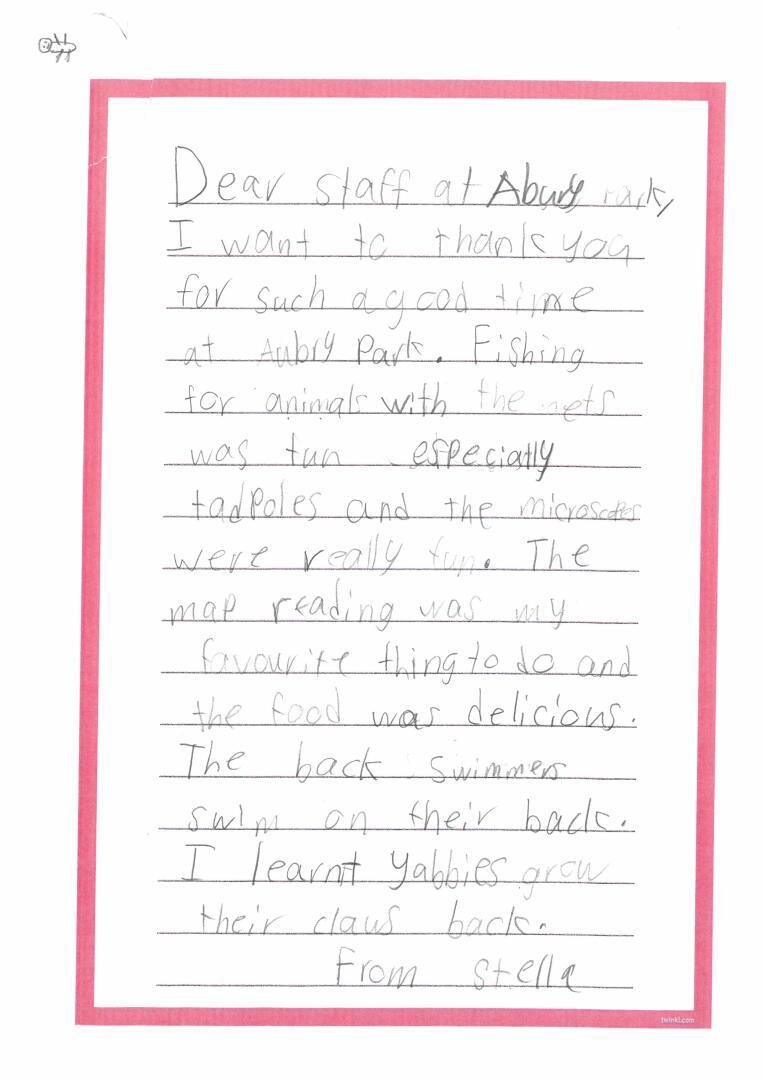 Dear staff at Abury Park,
I want to thank you
for such a good time
at Aubry Park. Fishing
for animals with the nets
was fun especially
tadpoles and the microscopes
were really fun. The
map reading was my
favourite thing to do and
the food was delicious.
The back swimmers
swim on their back.
I learnt yabbies grow
their claws back.
From Stella
twinkl.com